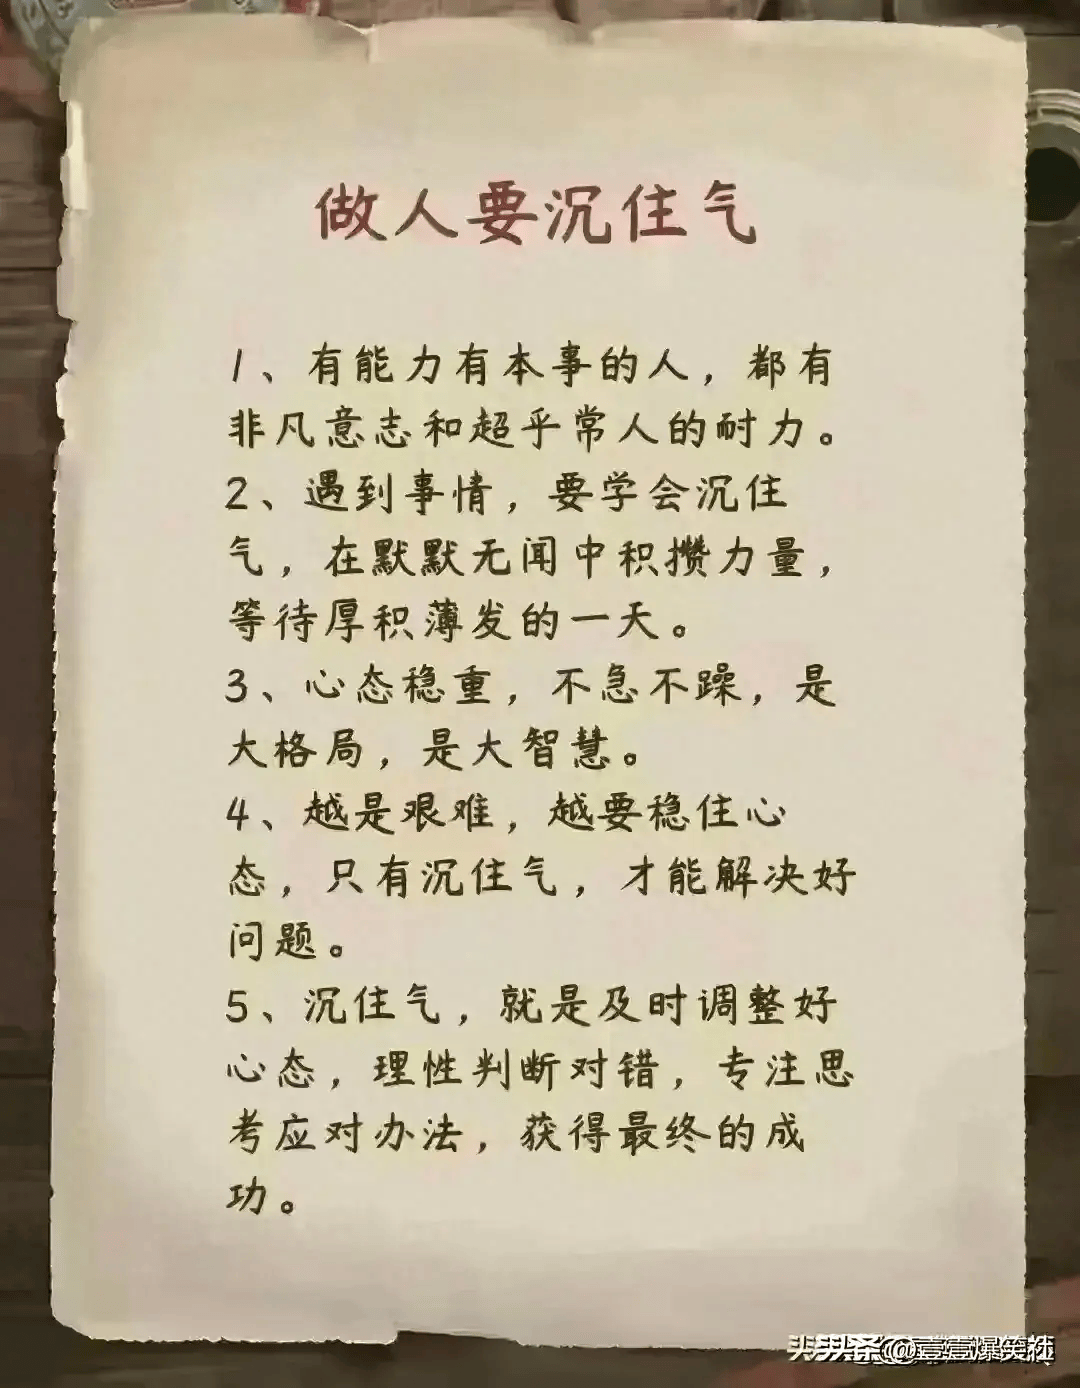 做人要沉住气
1、有能力有本事的人，都有
非凡意志和超乎常人的耐力。
2、遇到事情，要学会沉住
气，在默默无闻中积攒力量，
等待厚积薄发的一天。
3、心态稳重，不急不躁，是
大格局，是大智慧。
4、越是艰难，越要稳住心
态，只有沉住气，才能解决好
问题。
5、沉住气，就是及时调整好
心态，理性判断对错，专注思
考应对办法，获得最终的成
功。
头头条@壹壹爆笑社